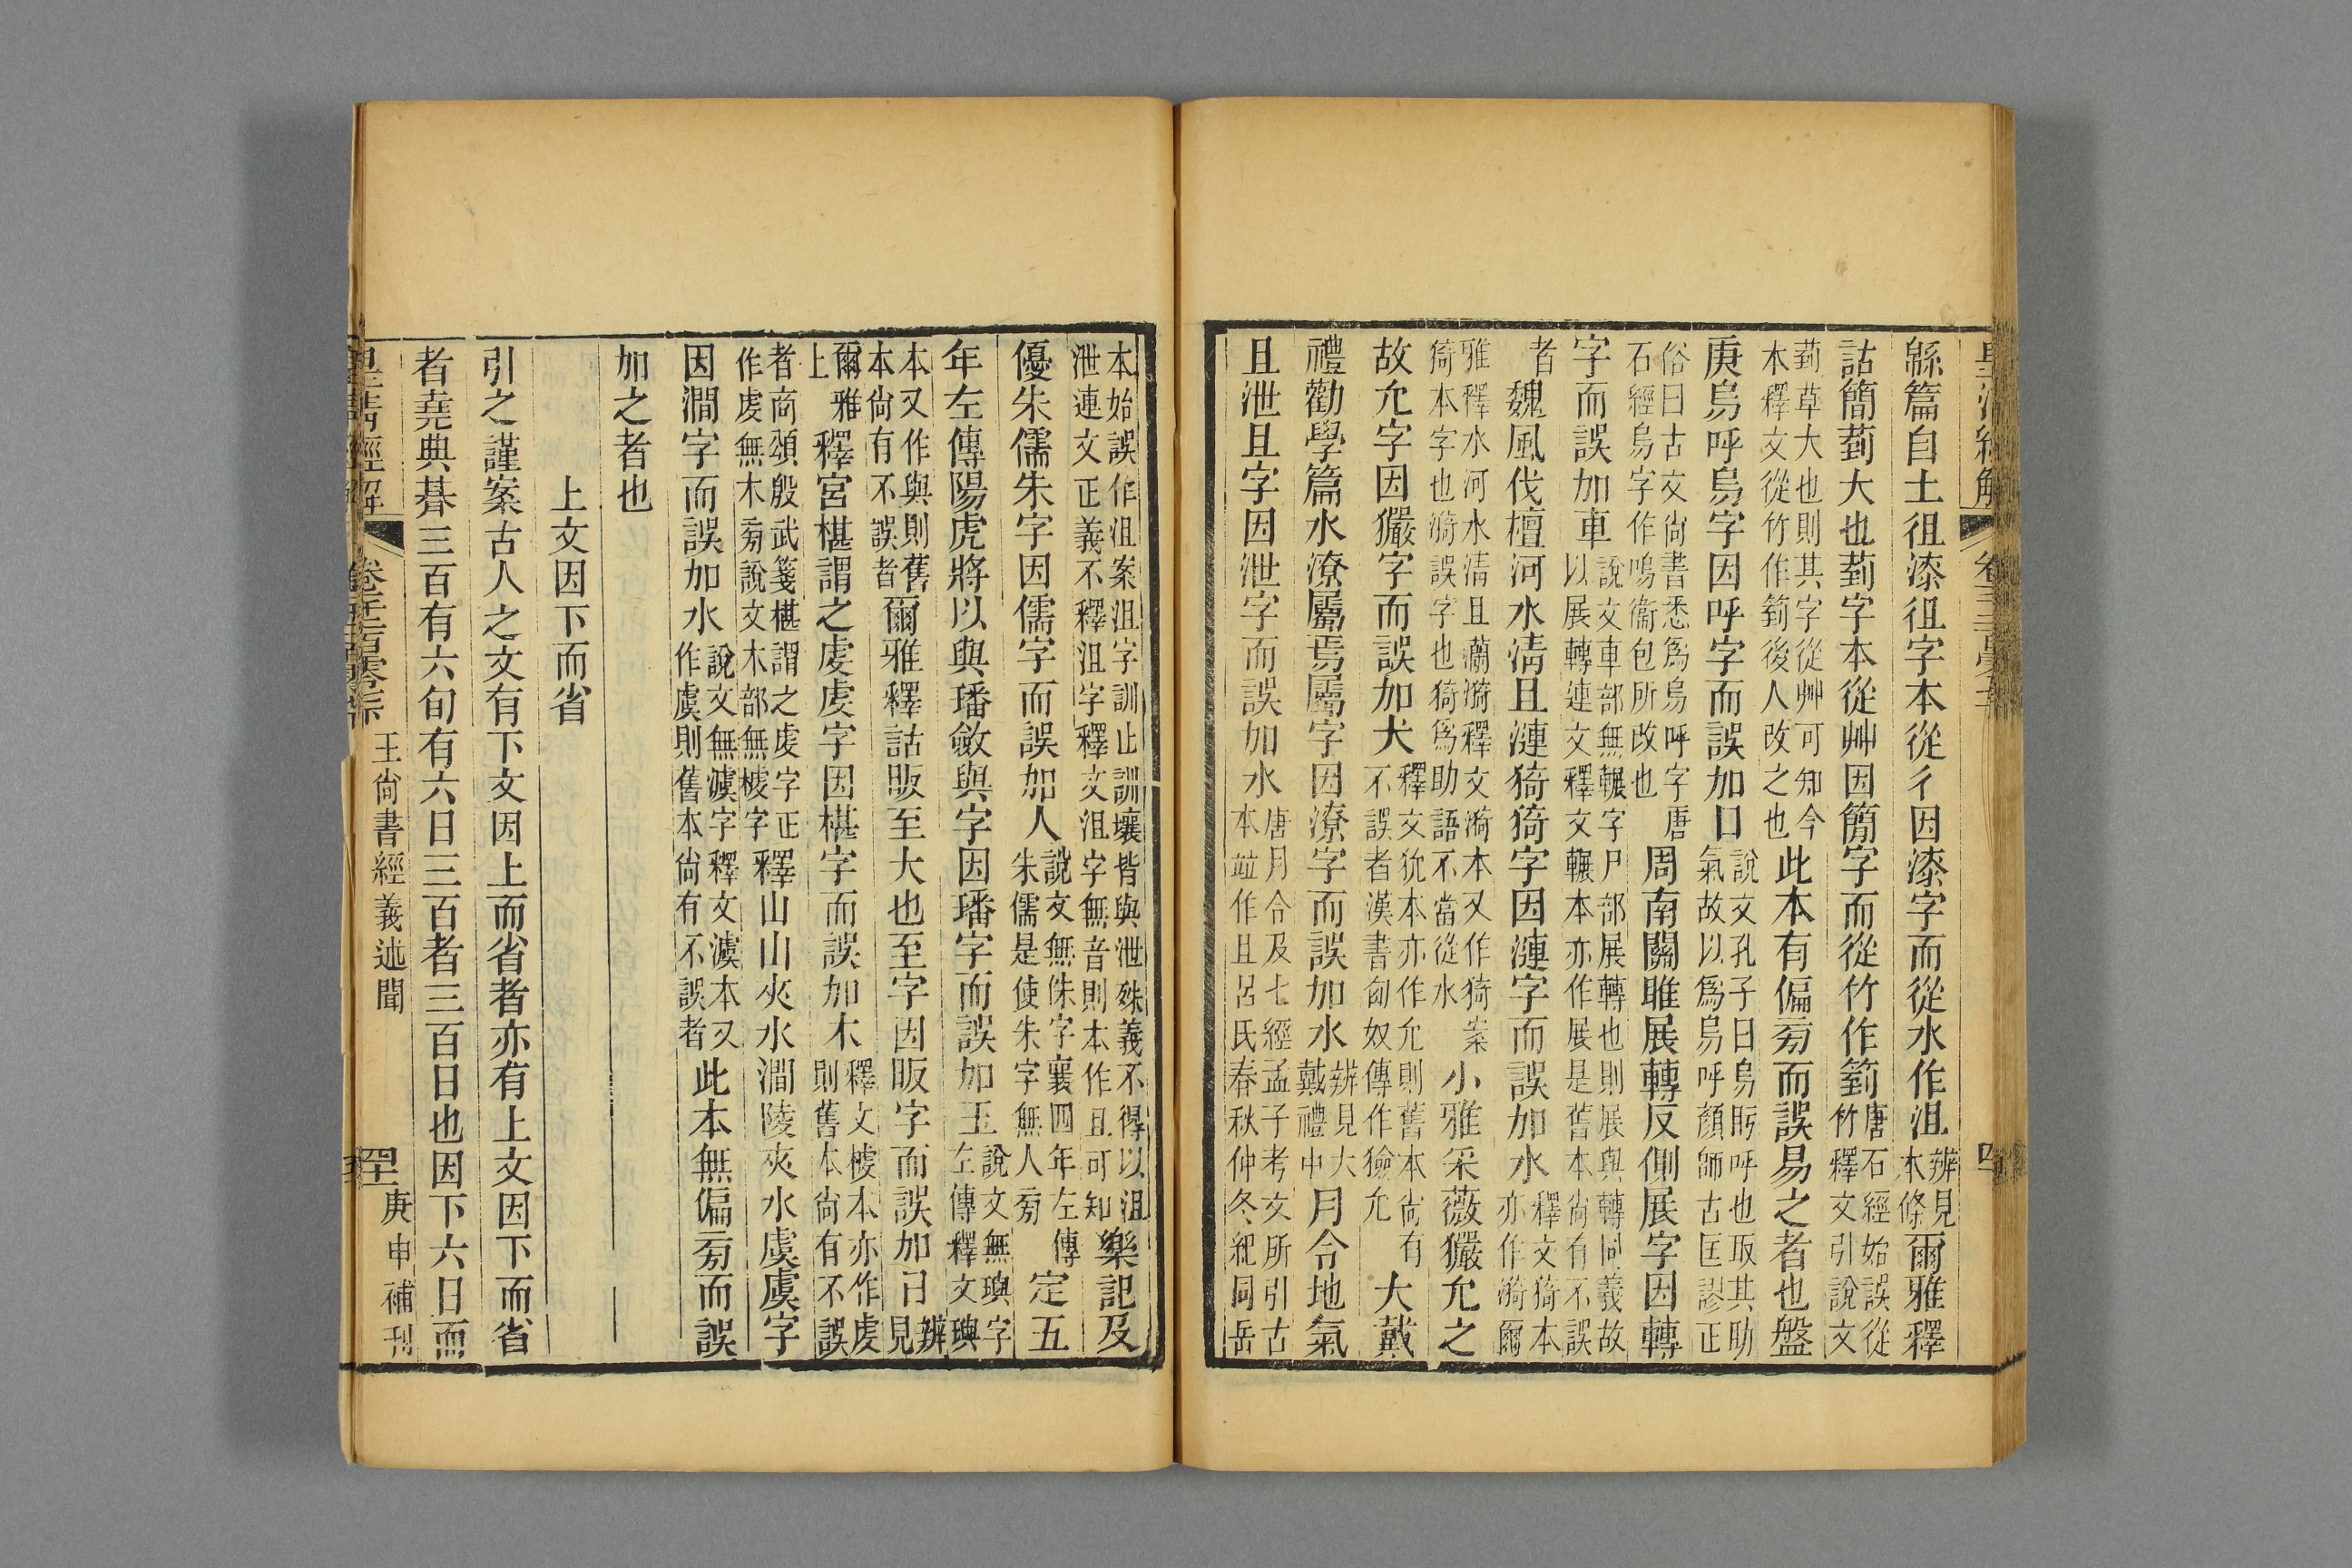 緜篇自土徂漆徂字本從彳因漆字而從水作沮辨見本條爾雅釋
詁簡菿大也菿字本從艸因簡字而從竹作箌唐石經始誤從竹釋文引說文
菿草大也則其字從艸可知今本釋文從竹作箌後人改之也此本有偏旁而誤易之者也盤
庚烏呼烏字因呼字而誤加口說文孔子曰烏盱呼也取其助氣故以爲烏呼顏師古匡謬正
俗曰古文尚書悉爲烏呼字唐石經烏字作嗚衞包所改也周南關雎展轉反側展字因轉
字而誤加車說文車部無輾字尸部展轉也則展與轉同義故以展轉連文釋文輾本亦作展是舊本尚有不誤
者魏風伐檀河水清且漣猗猗字因漣字而誤加水釋文猗本亦作漪爾
雅釋水河水清且灡漪釋文漪本又作猗案猗本字也漪誤字也猗爲助語不當從水小雅采薇玁允之
故允字因玁字而誤加犬釋文狁本亦作允則舊本尚有不誤者漢書匈奴傳作獫允大戴
禮勸學篇水潦屬焉屬字因潦字而誤加水辨見大戴禮中月令地氣
且泄且字因泄字而誤加水唐月令及七經孟子考文所引古本竝作且呂氏春秋仲冬紀同岳
本始誤作沮案沮字訓止訓壞皆與泄殊義不得以沮泄連文正義不釋沮字釋文沮字無音則本作且可知樂記及
優朱儒朱字因儒字而誤加人說文無侏字襄四年左傳朱儒是使朱字無人旁定五
年左傳陽虎將以與璠斂與字因璠字而誤加玉說文無璵字左傳釋文璵
本又作與則舊本尚有不誤者爾雅釋詁昄至大也至字因昄字而誤加日辨見
爾雅上釋宮椹謂之虔虔字因椹字而誤加木釋文榩本亦作虔則舊本尚有不誤
者商頌殷武箋椹謂之虔字正作虔無木旁說文木部無榩字釋山山夾水澗陵夾水虞虞字
因澗字而誤加水說文無澞字釋文澞本又作虞則舊本尚有不誤者此本無偏旁而誤
加之者也
上文因下而省
引之謹案古人之文有下文因上而省者亦有上文因下而省
者堯典朞三百有六旬有六日三百者三百日也因下六日而
皇清經解
王尚書經義述聞
庚申補刊